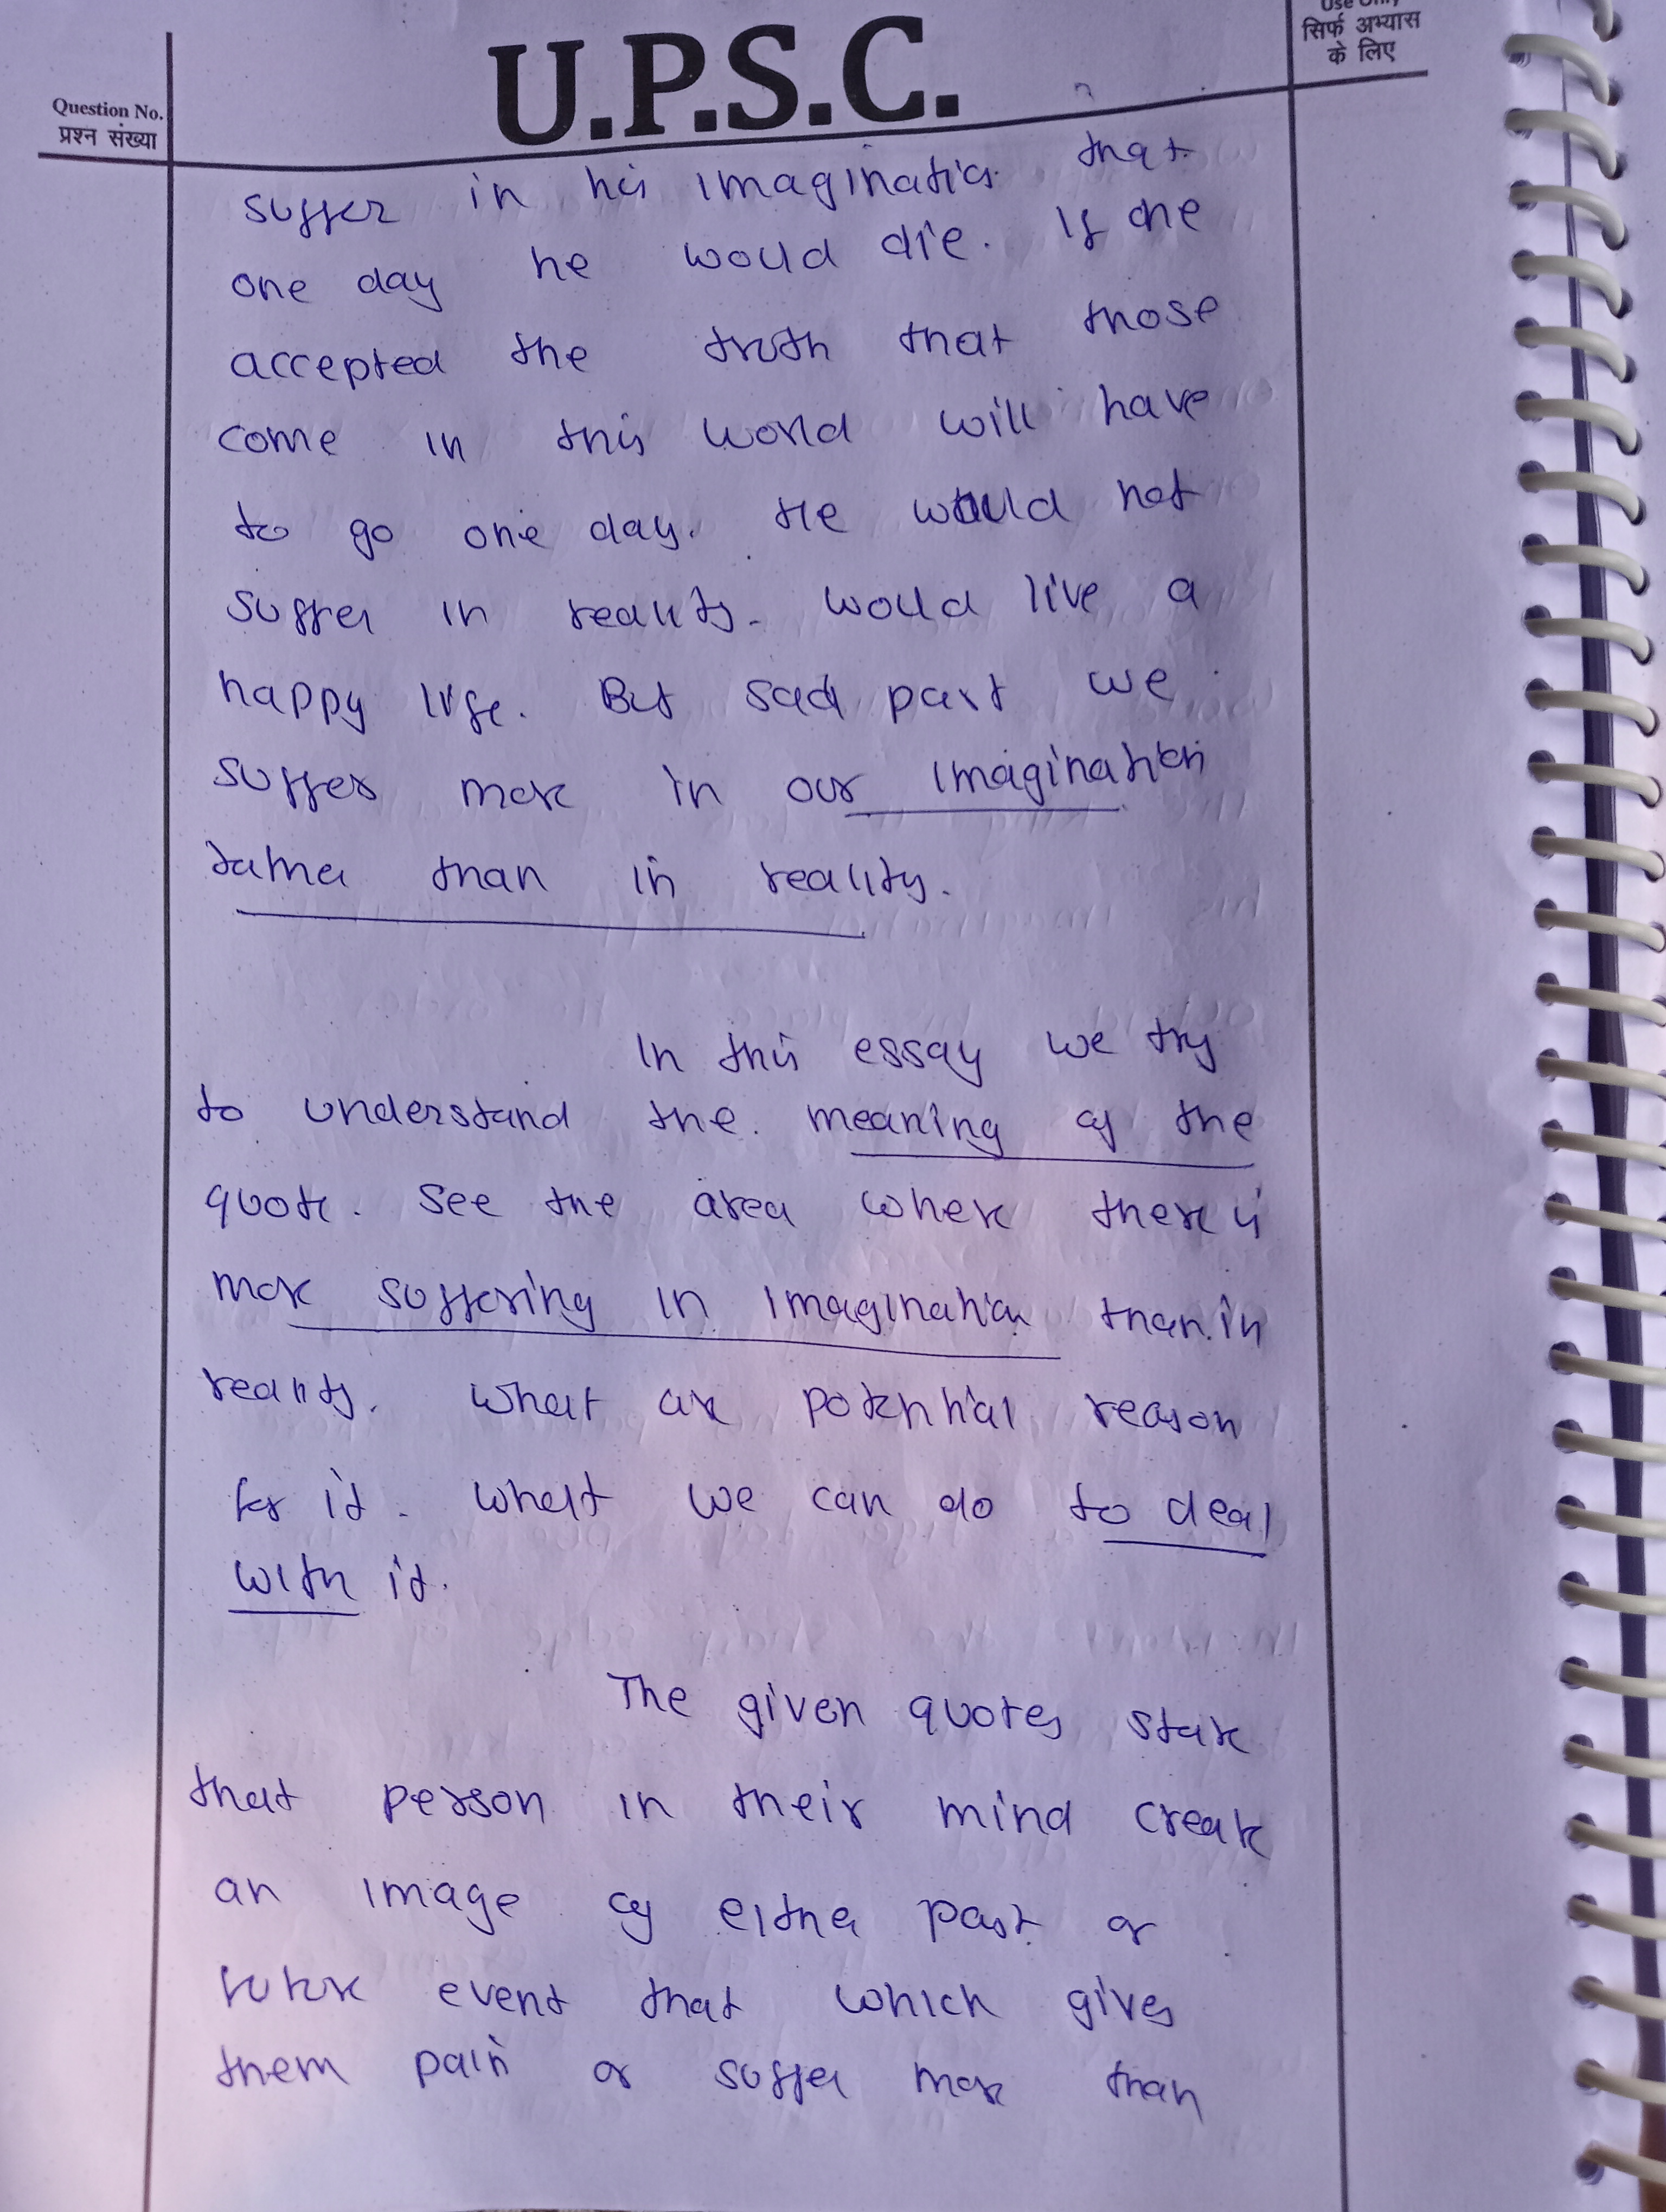 Use Only
सिर्फ अभ्यास
के लिए
U.P.S.C.
Question No.
प्रश्न संख्या
suffer in his imagination that
one day he would die. If one
accepted the truth that those
come in this world will have
to go one day. He would not
suffer in reality. Would live a
happy life. But sad part we
suffer more in our imagination
rather than in reality.
In this essay we try
to understand the meaning of the
quote. See the area where there is
more suffering in imagination than in
reality. What are potential reason
for it. What we can do to deal
with it.
The given quotes state
that person in their mind create
an image of either past or
future event that which gives
them pain or suffer more than